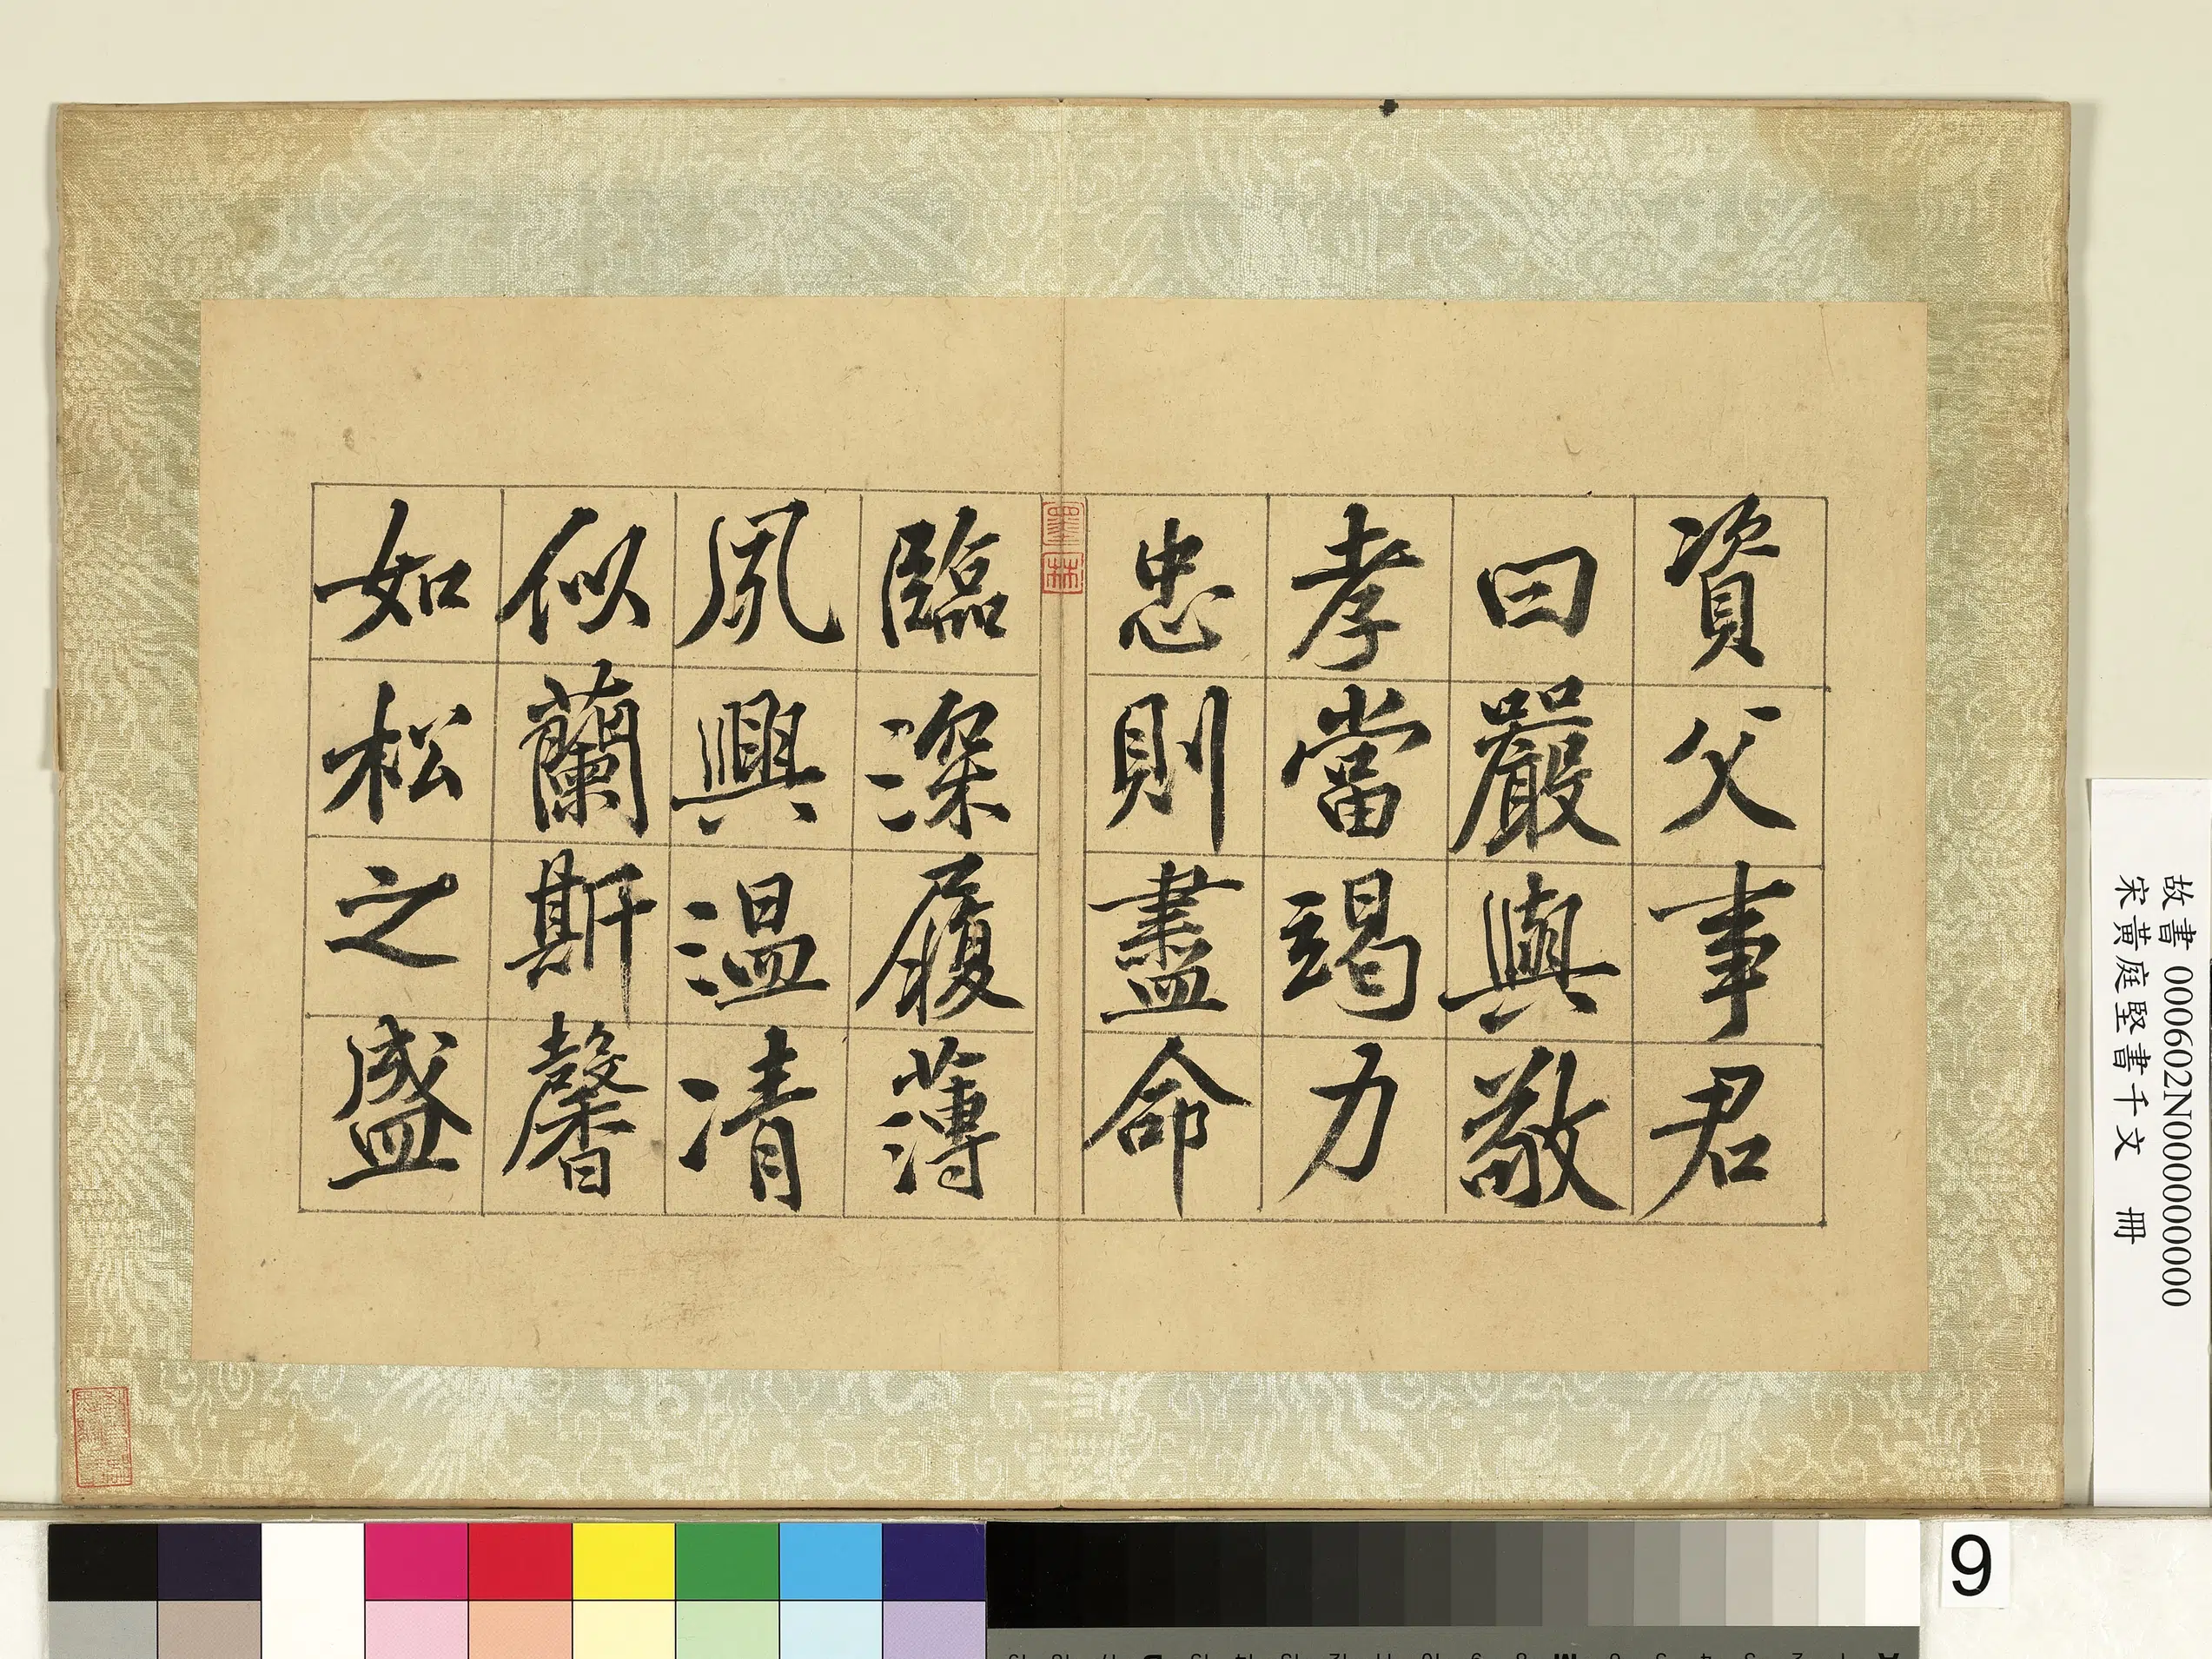 資父事君
曰嚴與敬
孝當竭力
忠則盡命
臨深履薄
夙興温凊
似蘭斯馨
如松之盛
墨林
故書 000602N000000000
宋黃庭堅書千文 冊
9